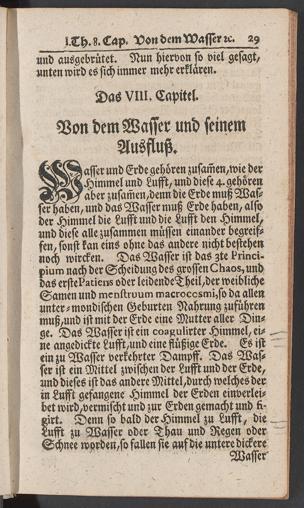 I.Th. 8. Cap. Von dem Wasser ꝛc. 29
und ausgebrütet. Nun hiervon so viel gesagt,
unten wird es sich immer mehr erklären.
Das VIII. Capitel.
Von dem Wasser und seinem
Ausfluß.
Wasser und Erde gehören zusam̃en, wie der
Himmel und Lufft, und diese 4. gehören
aber zusam̃en, denn die Erde muß Was-
ser haben, und das Wasser muß Erde haben, also
der Himmel die Lufft und die Lufft den Himmel,
und diese alle zusammen müssen einander begreif-
fen, sonst kan eins ohne das andere nicht bestehen
noch wircken. Das Wasser ist das 3te Princi-
pium nach der Scheidung des grossen Chaos, und
das erste Patiens oder leidende Theil, der weibliche
Samen und menstruum macrocosmi, so da allen
unter-mondischen Geburten Nahrung zuführen
muß, und ist mit der Erde eine Mutter aller Din-
ge. Das Wasser ist ein coagulirter Himmel, ei-
ne angedickte Lufft, und eine flüßige Erde. Es ist
ein zu Wasser verkehrter Dampff. Das Was-
ser ist ein Mittel zwischen der Lufft und der Erde,
und dieses ist das andere Mittel, durch welches der
in Lufft gefangene Himmel der Erden einverlei-
bet wird, vermischt und zur Erden gemacht und fi-
girt. Denn so bald der Himmel zu Lufft, die
Lufft zu Wasser oder Thau und Regen oder
Schnee worden, so fallen sie auf die untere dickere
Wasser